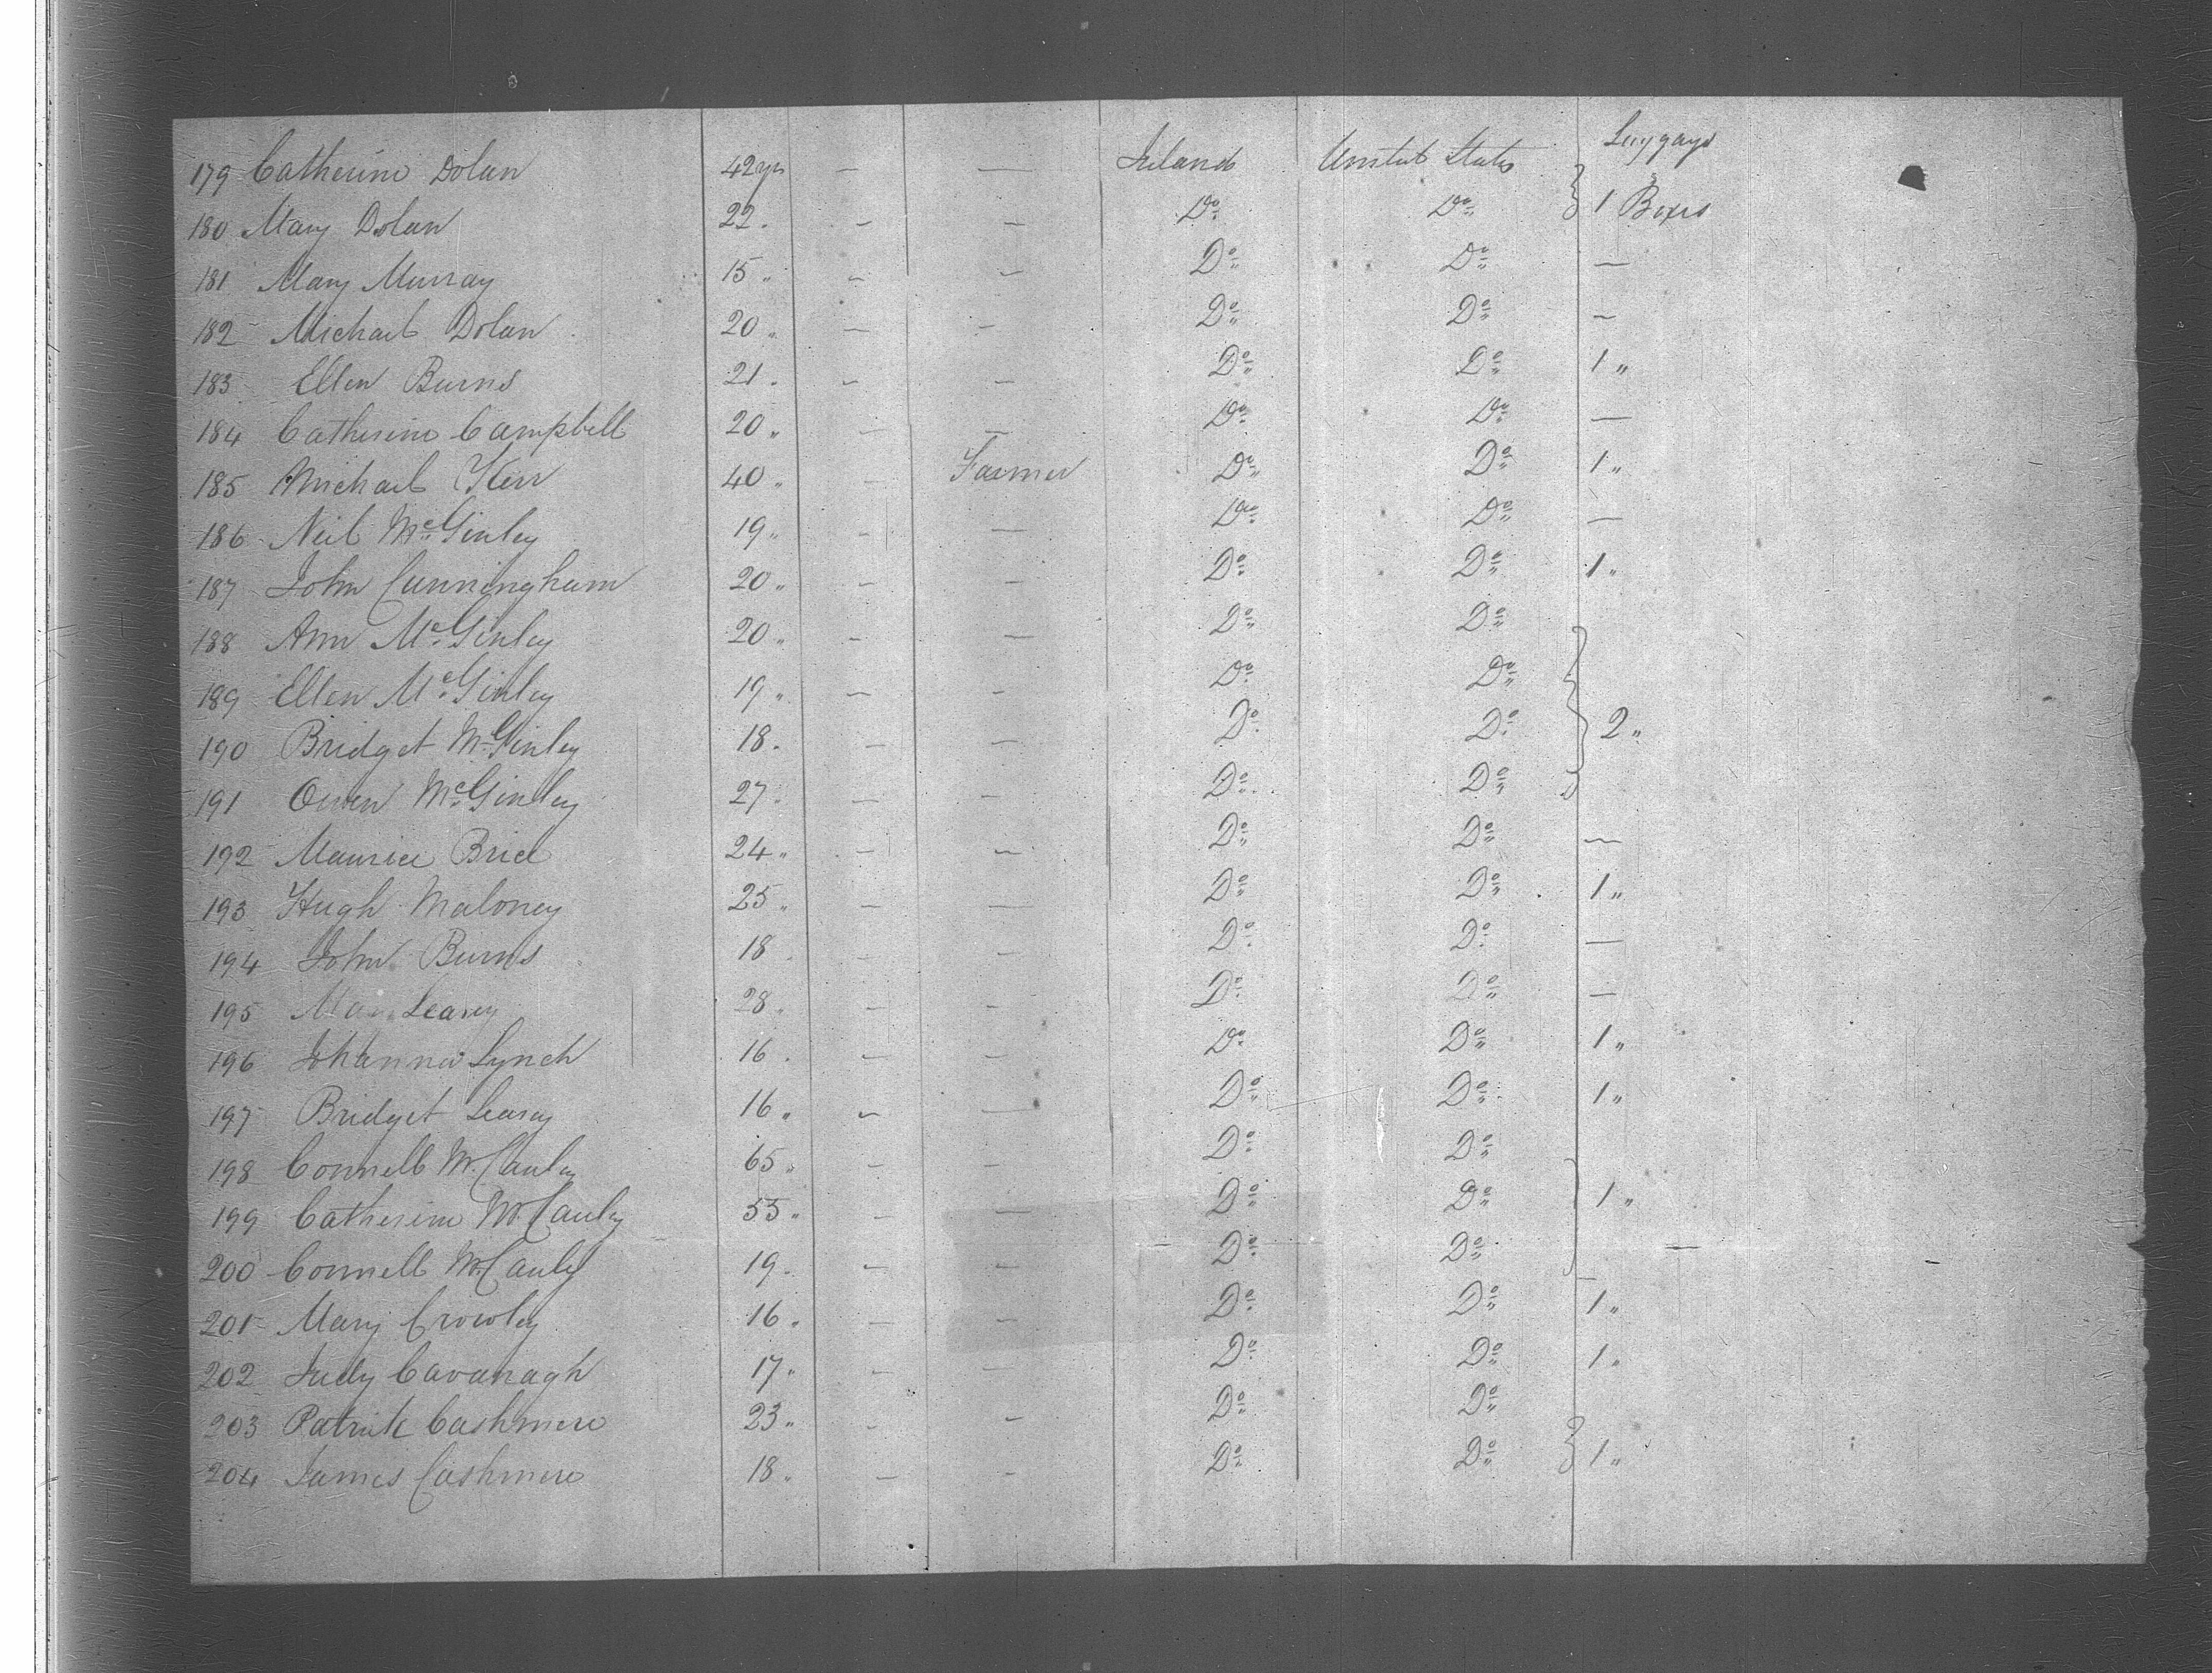 Luggage
179 Catherine Dolan 42 yrs — — Ireland United States
180 Mary Dolan 22 " — — Do Do } 1 Boxes
181 Mary Murray 15 " — — Do Do —
182 Michael Dolan 20 " — — Do Do —
183 Ellen Burns 21 " — — Do Do 1 "
184 Catherine Campbell 20 " — — Do Do —
185 Michael Kerr 40 " — Farmer Do Do 1 "
186 Neil McGinley 19 " — — Do Do —
187 John Cunningham 20 " — — Do Do 1 "
188 Ann McGinley 20 " — — Do Do
189 Ellen McGinley 19 " — — Do Do
190 Bridget McGinley 18 " — — Do Do } 2 "
191 Owen McGinley 27 " — — Do Do
192 Maurice Brice 24 " — — Do Do —
193 Hugh Maloney 25 " — — Do Do 1 "
194 John Burns 18 " — — Do Do —
195 Leary 28 " — — Do Do —
196 Johanna Lynch 16 " — — Do Do 1 "
197 Bridget Leary 16 " — — Do Do 1 "
198 Connell McCauley 65 " — — Do Do
199 Catherine McCauley 55 " — — Do Do } 1 "
200 Connell McCauley 19 " — — Do Do
201 Mary Crowley 16 " — — Do Do 1 "
202 Judy Cavanagh 17 " — — Do Do 1 "
203 Patrick Cashmere 23 " — — Do Do
204 James Cashmere 18 " — — Do Do } 1 "